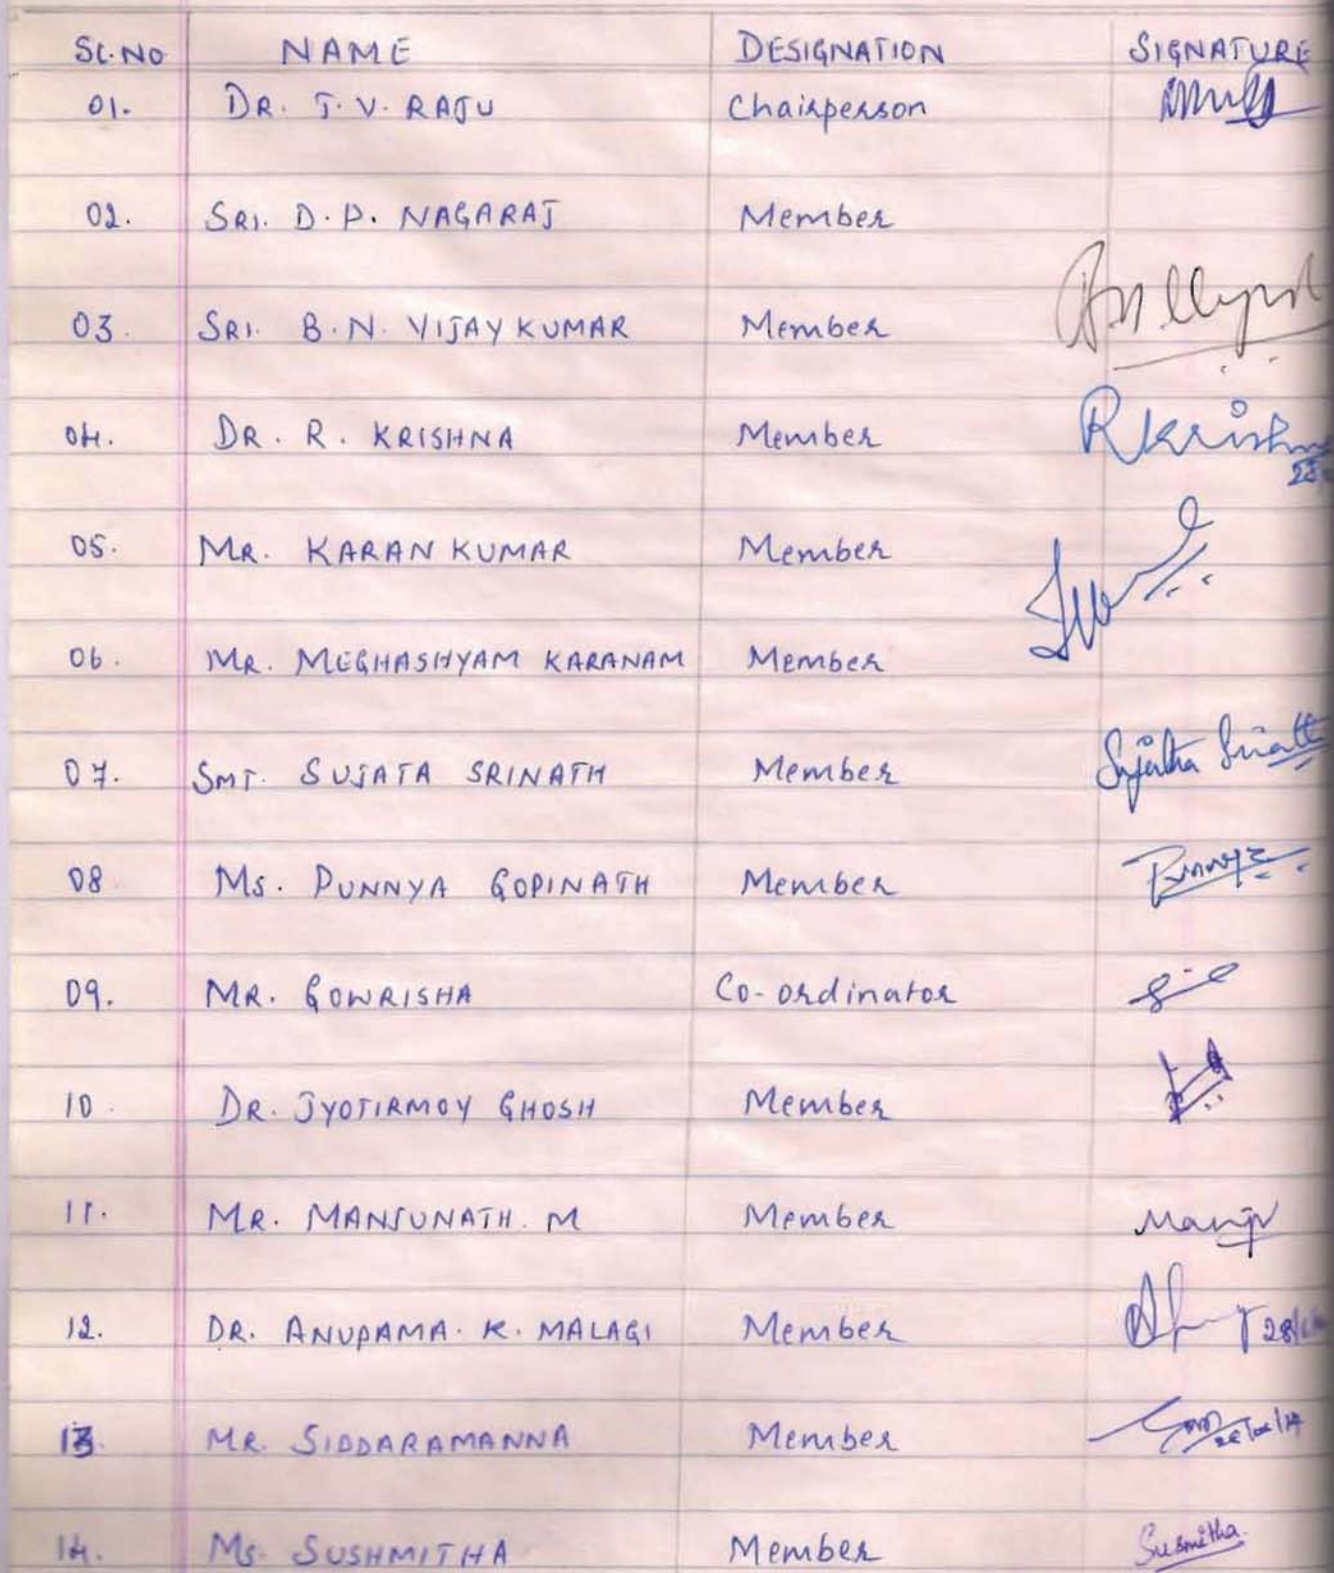 SL.NO NAME DESIGNATION SIGNATURE
01. DR. T. V. RAJU Chairperson
02. SRI. D. P. NAGARAJ Member
03. SRI. B. N. VIJAY KUMAR Member
04. DR. R. KRISHNA Member RKrishna
05. MR. KARAN KUMAR Member
06. MR. MEGHASHYAM KARANAM Member
07. SMT. SUJATA SRINATH Member Sujatha Srinath
08 MS. PUNNYA GOPINATH Member Punnya
09. MR. GOWRISHA Co-ordinator
10. DR. JYOTIRMOY GHOSH Member
11. MR. MANJUNATH. M Member Manju
12. DR. ANUPAMA. K. MALAGI Member
13. MR. SIDDARAMANNA Member
14. MS. SUSHMITHA Member Susmitha